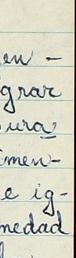 en -
grar
ura
imen-
e ig-
medad